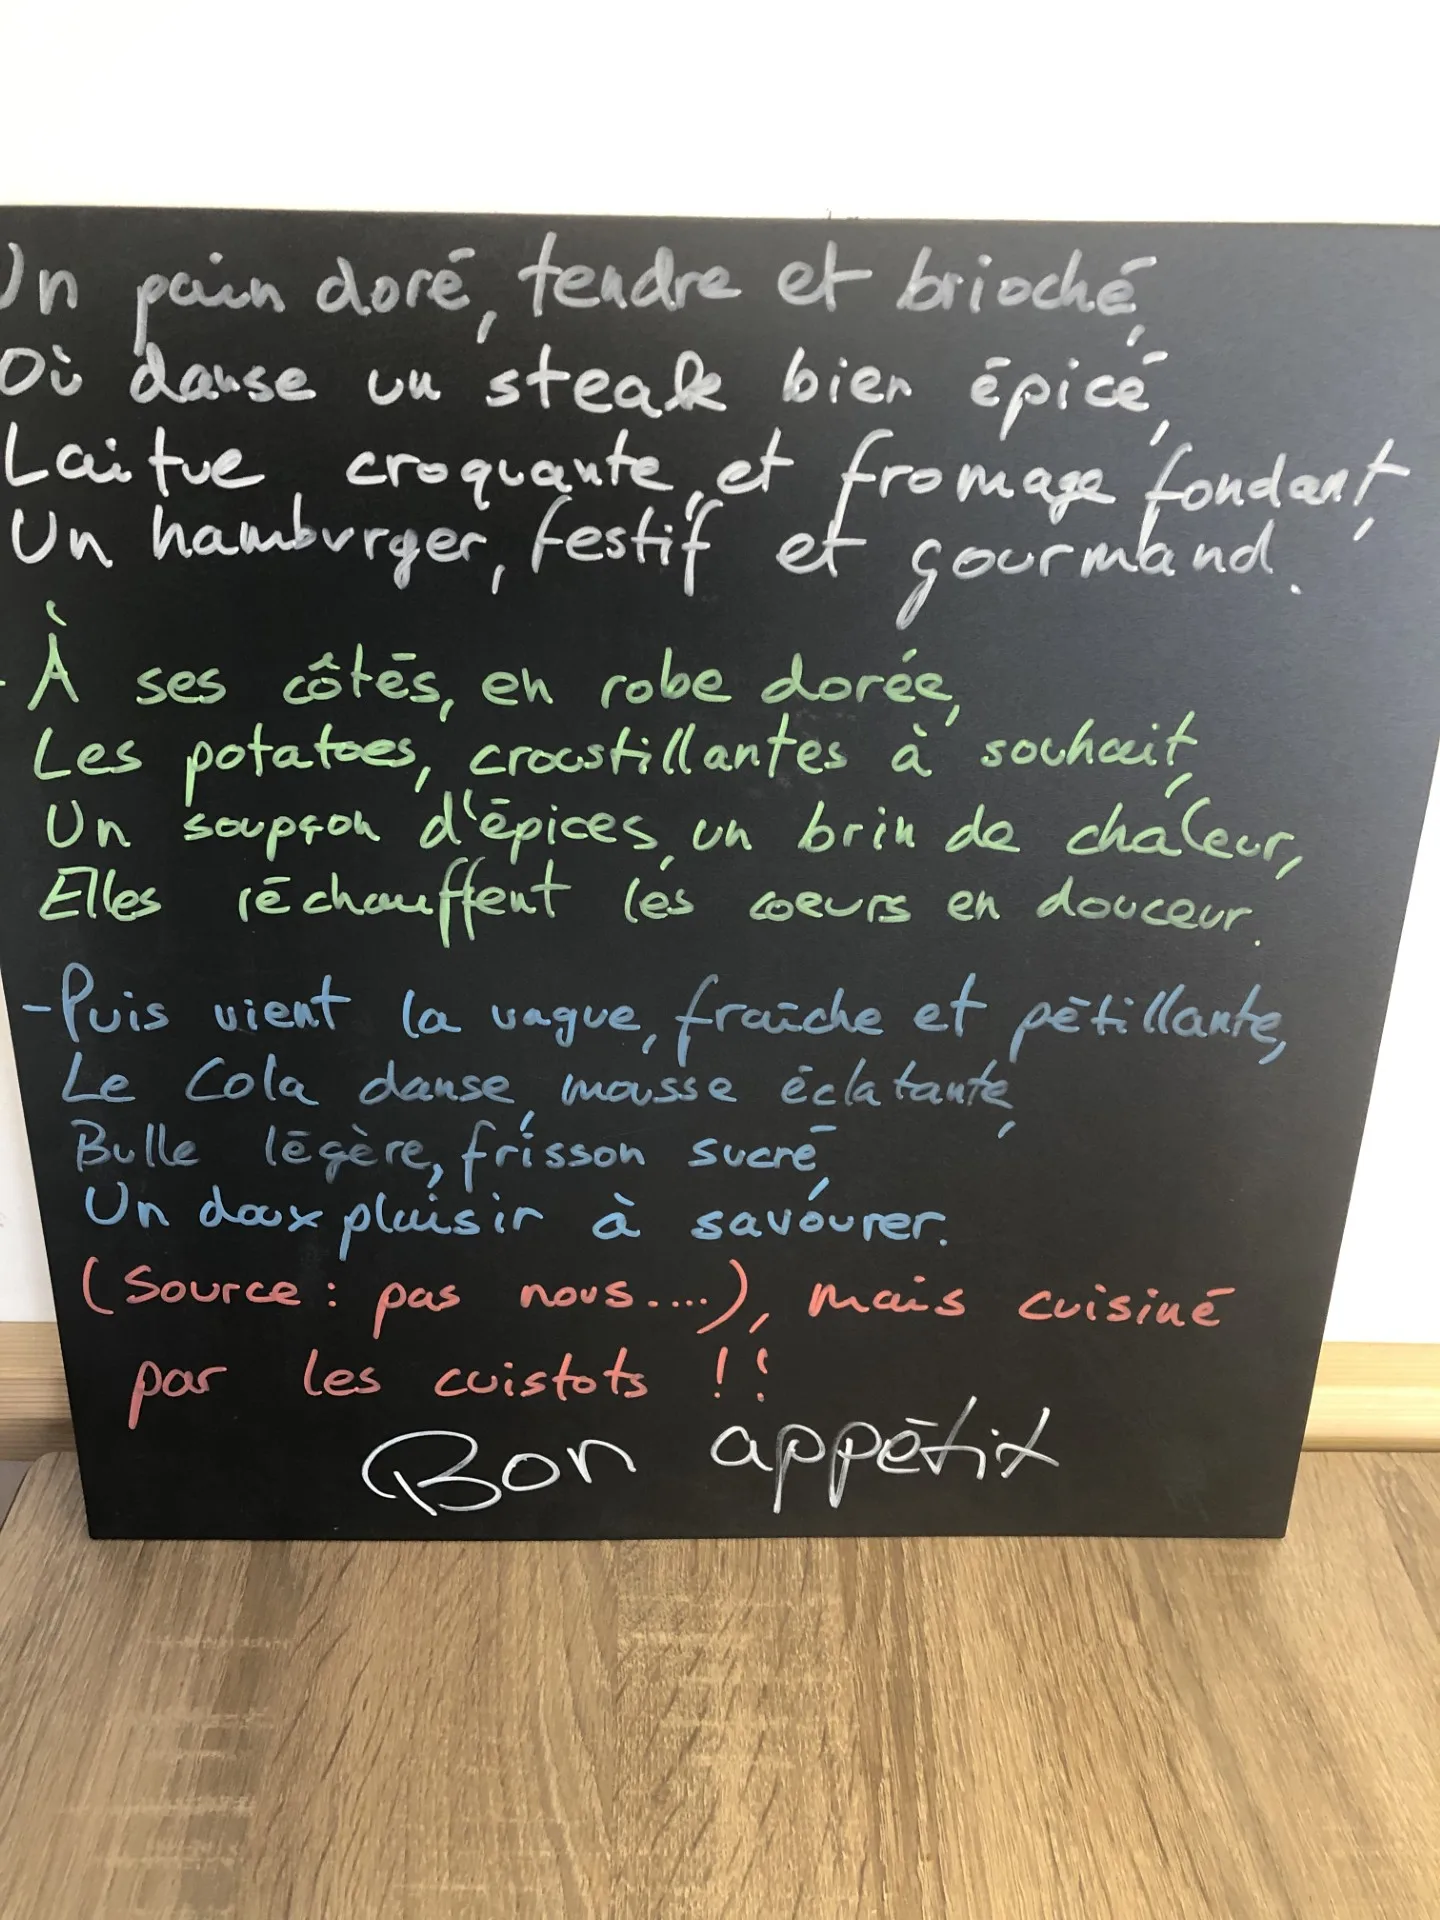 Un pain doré, tendre et brioché,
Où danse un steak bien épicé,
Laitue croquante, et fromage fondant,
Un hamburger, festif et gourmand.
- À ses côtés, en robe dorée,
Les potatoes, croustillantes à souhait,
Un soupçon d'épices, un brin de chaleur,
Elles réchauffent les coeurs en douceur.
- Puis vient la vague, fraîche et pétillante,
Le Cola danse, mousse éclatante,
Bulle légère, frisson sucré,
Un doux plaisir à savourer.
(Source : pas nous....), mais cuisiné
par les cuistots !!
Bon appétit